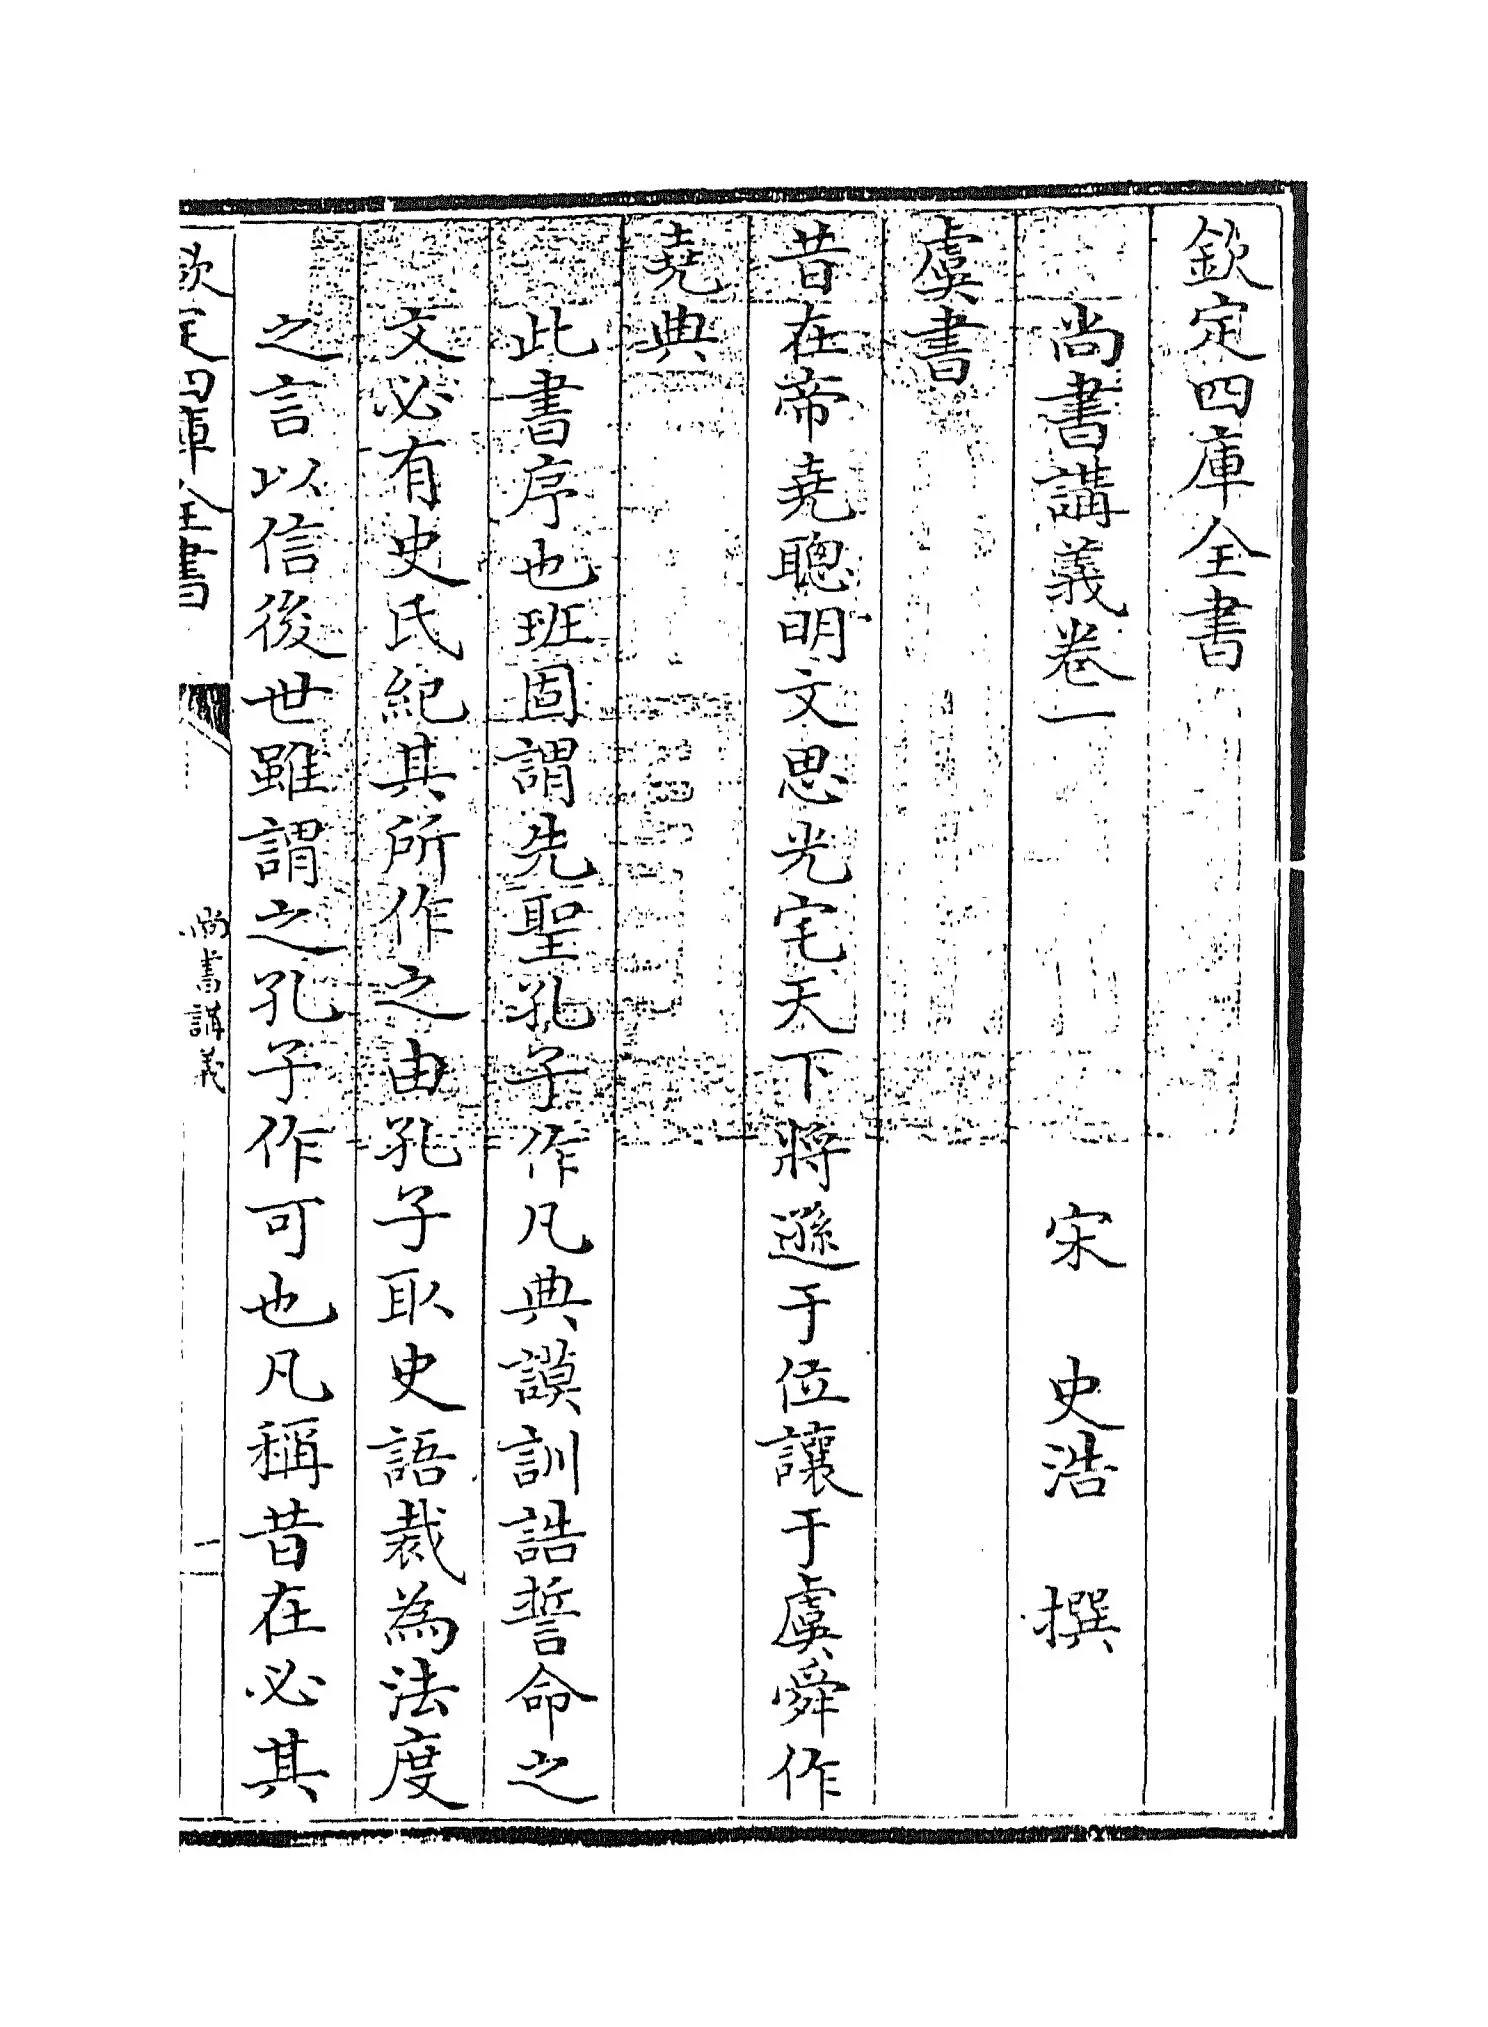 欽定四庫全書
尚書講義卷一 宋 史浩 撰
虞書
昔在帝堯聰明文思光宅天下將遜于位讓于虞舜作
堯典
此書序也班固謂先聖孔子作凡典謨訓誥誓命之
文必有史氏紀其所作之由孔子取史語裁為法度
之言以信後世雖謂之孔子作可也凡稱昔在必其
欽定四庫全書
尚書講義
一